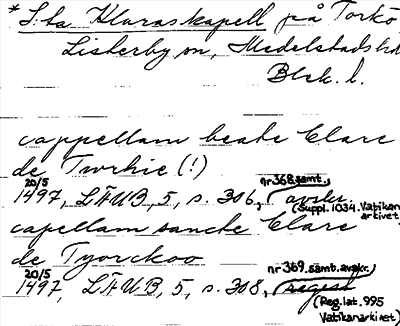 *S:ta Klaraskapell på Torkö
Listerby sn, Medelstads hd
Blek. l.
cappellam beate Clare
de Twrhie (!)
20/5 nr 368 samt.
1497, LÄUB, 5, s. 306, avskr.
(Suppl. 1034. Vatikan
arkivet)
capellam sancte Clare
de Tyorckoo
20/5 nr 369. samt. avskr.
1497, LÄUB, 5, s. 308, regest
(Reg. lat. 995
Vatikanarkivet)